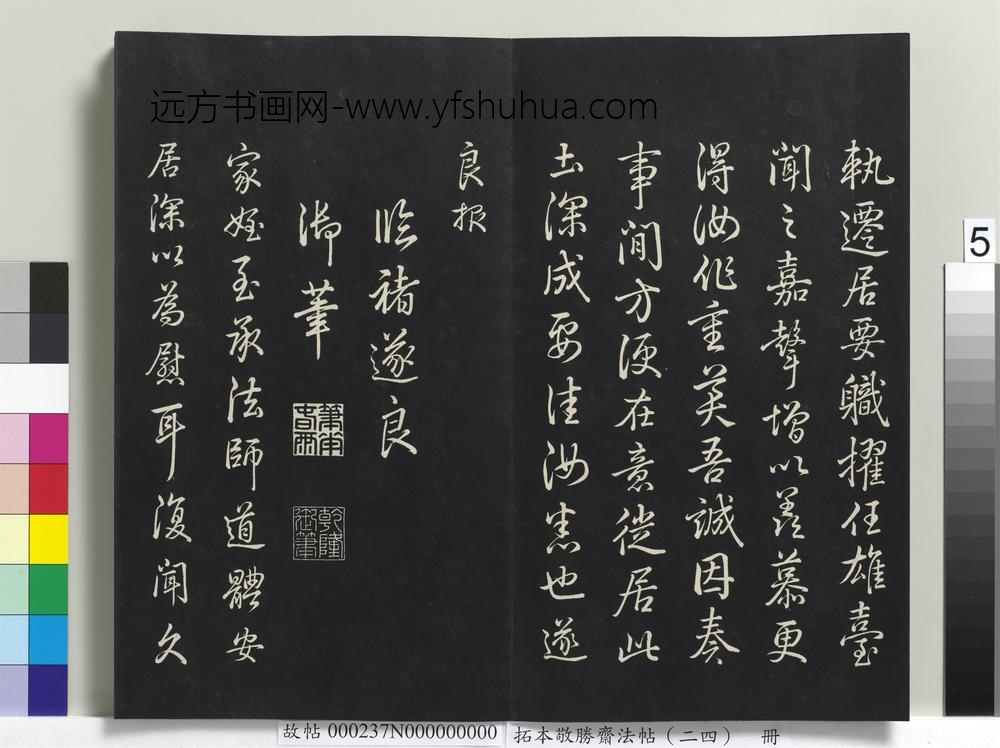 远方书画网-www.yfshuhua.com
執遷居要職擢任雄臺
聞之嘉聲增以羨慕更
得汝作重美吾誠因奏
事閒方便在意從居此
土深成要佳汝悉也遂
良報
臨褚遂良
御筆
乾隆御筆
家姪至承法師道體安
居深以為慰耳復聞久
5
故帖 000237N000000000 拓本敬勝齋法帖（二四） 冊